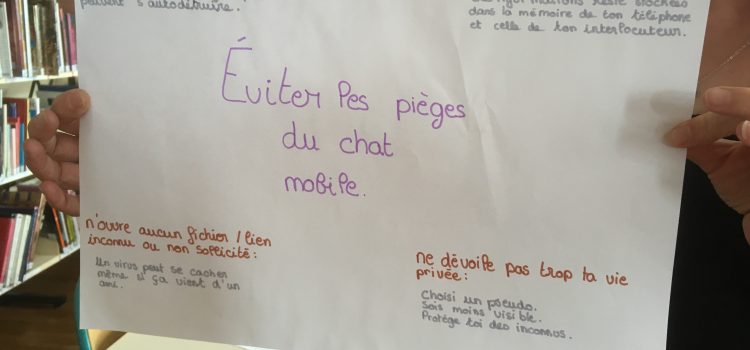 s'autodétruire.
dans la mémoire de ton téléphone
et celle de ton interlocuteur.
Éviter les pièges
du chat
mobile.
n'ouvre aucun fichier / lien
inconnu ou non sollicité :
Un virus peut se cacher
même si ça vient d'un
ami.
ne dévoile pas trop ta vie
privée :
Choisi un pseudo.
Sois moins visible.
Protège toi des inconnus.